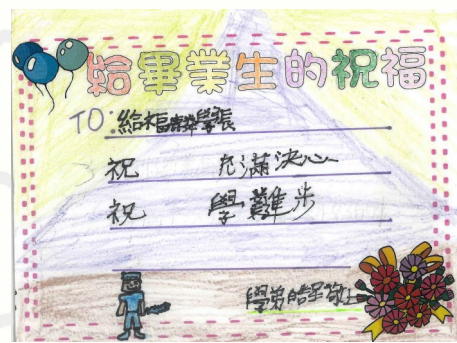 給畢業生的祝福
TO:給福麟學張
祝 充滿決心
祝 學難步
學弟皓呈敬上